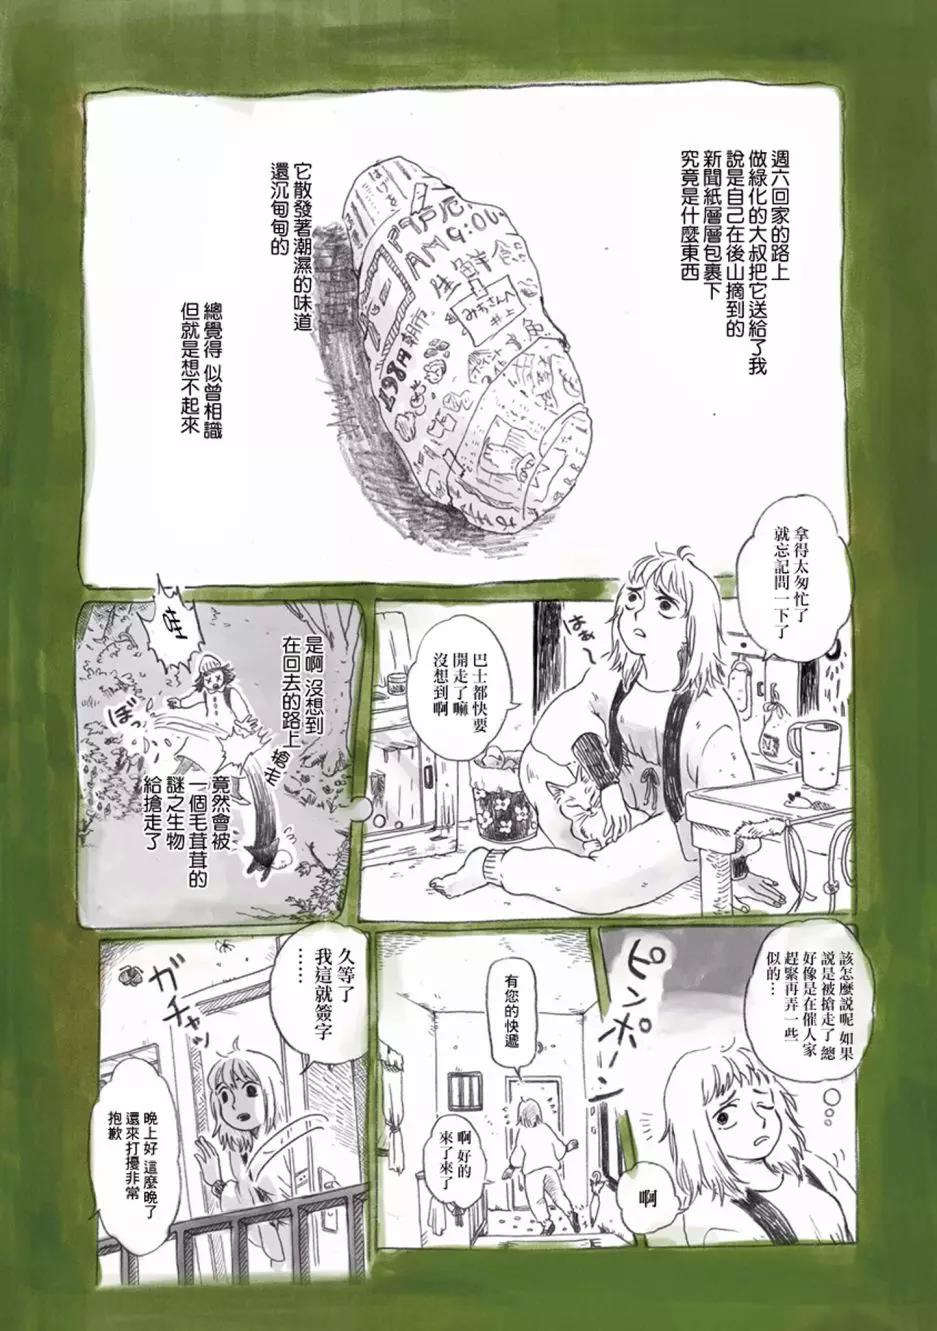 週六回家的路上
做綠化的大叔把它送給了我
說是自己在後山摘到的
新聞紙層層包裹下
究竟是什麼東西
它散發著潮濕的味道
還沉甸甸的
總覺得 似曾相識
但就是想不起來
AM9:00
生鮮食品
みちさんへ
井上
魚
198円
拿得太匆忙了
就忘記問一下了
はぁ～
巴士都快要
開走了嘛
沒想到啊
是啊 沒想到
在回去的路上
哇
ぼっ
搶走
竟然會被
一個毛茸茸的
謎之生物
給搶走了
該怎麼說呢 如果
說是被搶走了 總
好像是在催人家
趕緊再弄一些
似的…
ピンポーン
啊
有您的快遞
啊 好的
來了來了
久等了
我這就簽字
……
ガチャッ
晚上好 這麼晚了
還來打擾非常
抱歉